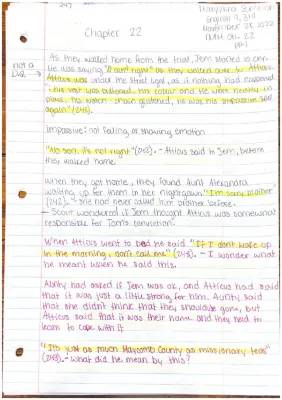 247
English 9, 3(1)
November 28, 2022
Chapter 22
pp1
As they walked home from the trial, Jem started to cry.
He was saying "It ain't right" as they walked over to Atticus.
not a DQ →
Atticus was under the street light, as if nothing had happened
his vest was buttoned, his collar and tie were neatly in
place, his watch-chain glistened, he was his impassive self
again" (243).
Impassive: not feeling or showing emotion
"No son, it's not right" (243). - Atticus said to Jem, before
they walked home.
When they got home, they found Aunt Alexandra
waiting up for them in her nightgown. "I'm sorry brother"
(242). - she had never called him brother before.
- Scout wondered if Jem thought Atticus was somewhat
responsible for Tom's conviction.
When Atticus went to bed he said "If I don't wake up
in the morning, don't call me" (243). - I wonder what
he meant when he said this.
Aunty had asked if Jem was ok, and Atticus had said
that it was just a little strong for him. Aunty said
that she didn't think that they should've gone, but
Atticus said that it was their home and they need to
learn to cope with it
"It's just as much Maycomb County as missionary teas"
(243). - what did he mean by this?